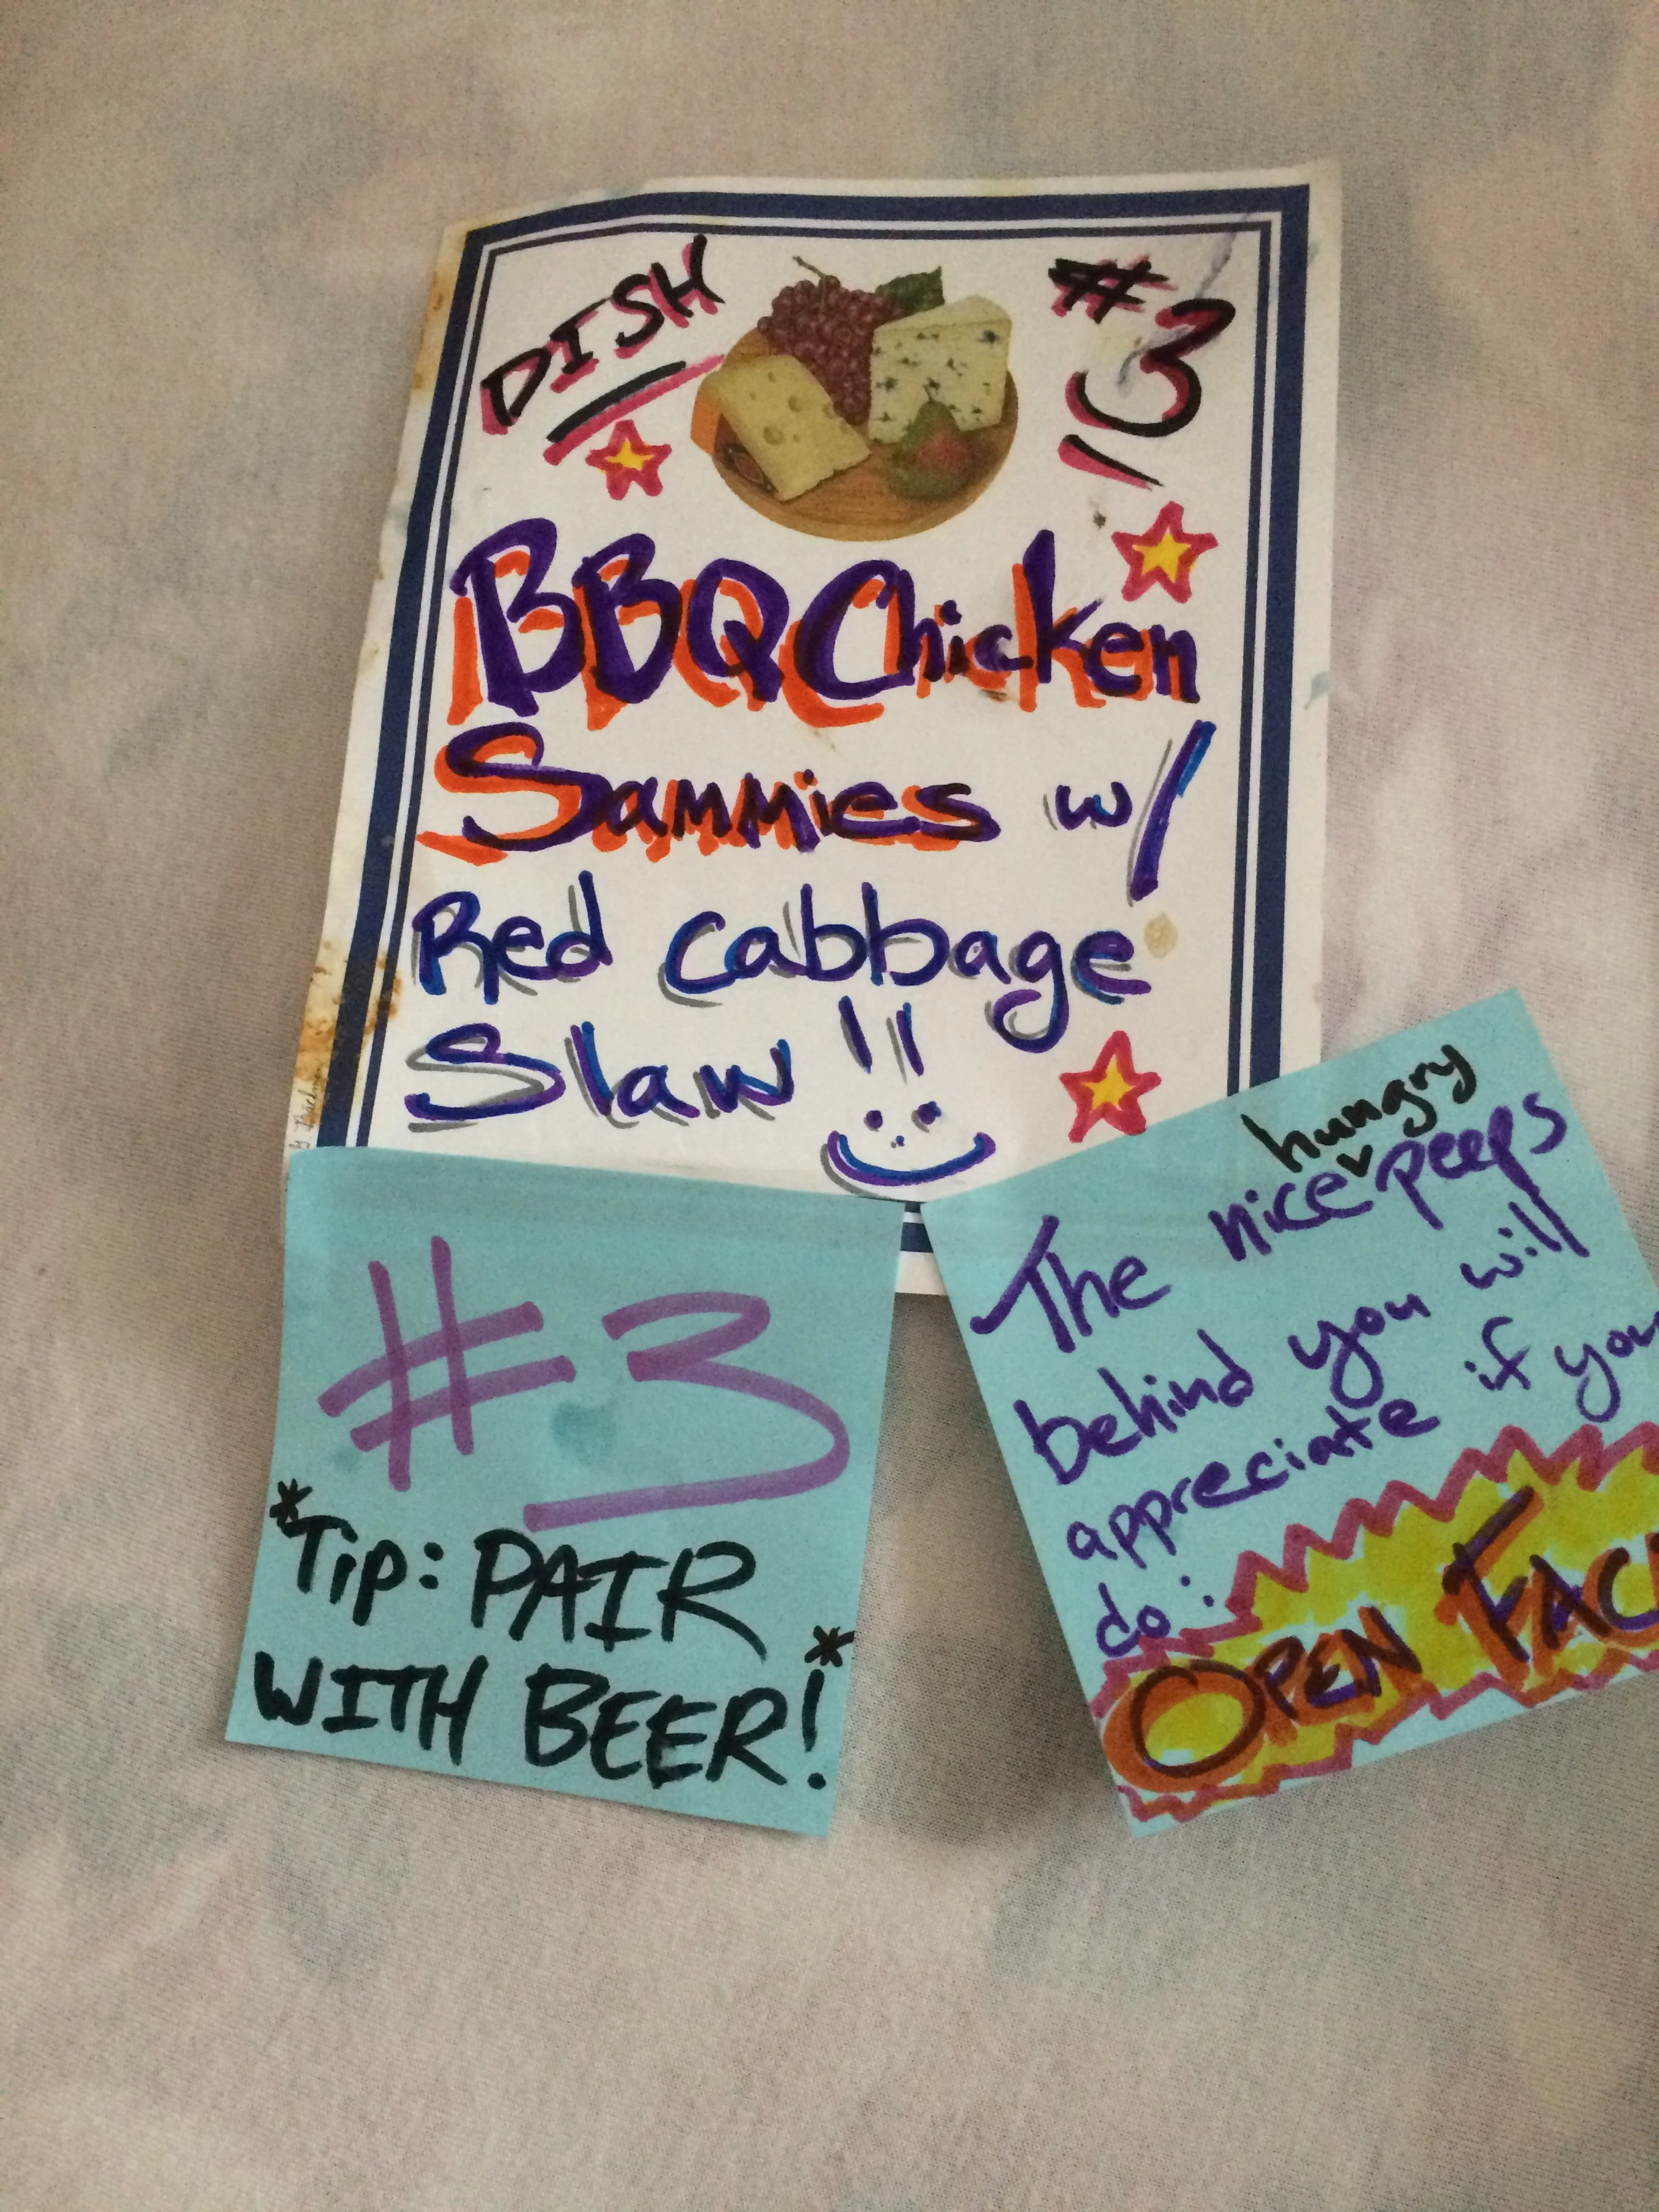 DISH #3
BBQ Chicken
Sammies w/
Red cabbage
Slaw !!
#3
*Tip: PAIR
WITH BEER!*
hungry
The nice peeps
behind you will
appreciate if you
do:
OPEN FAC